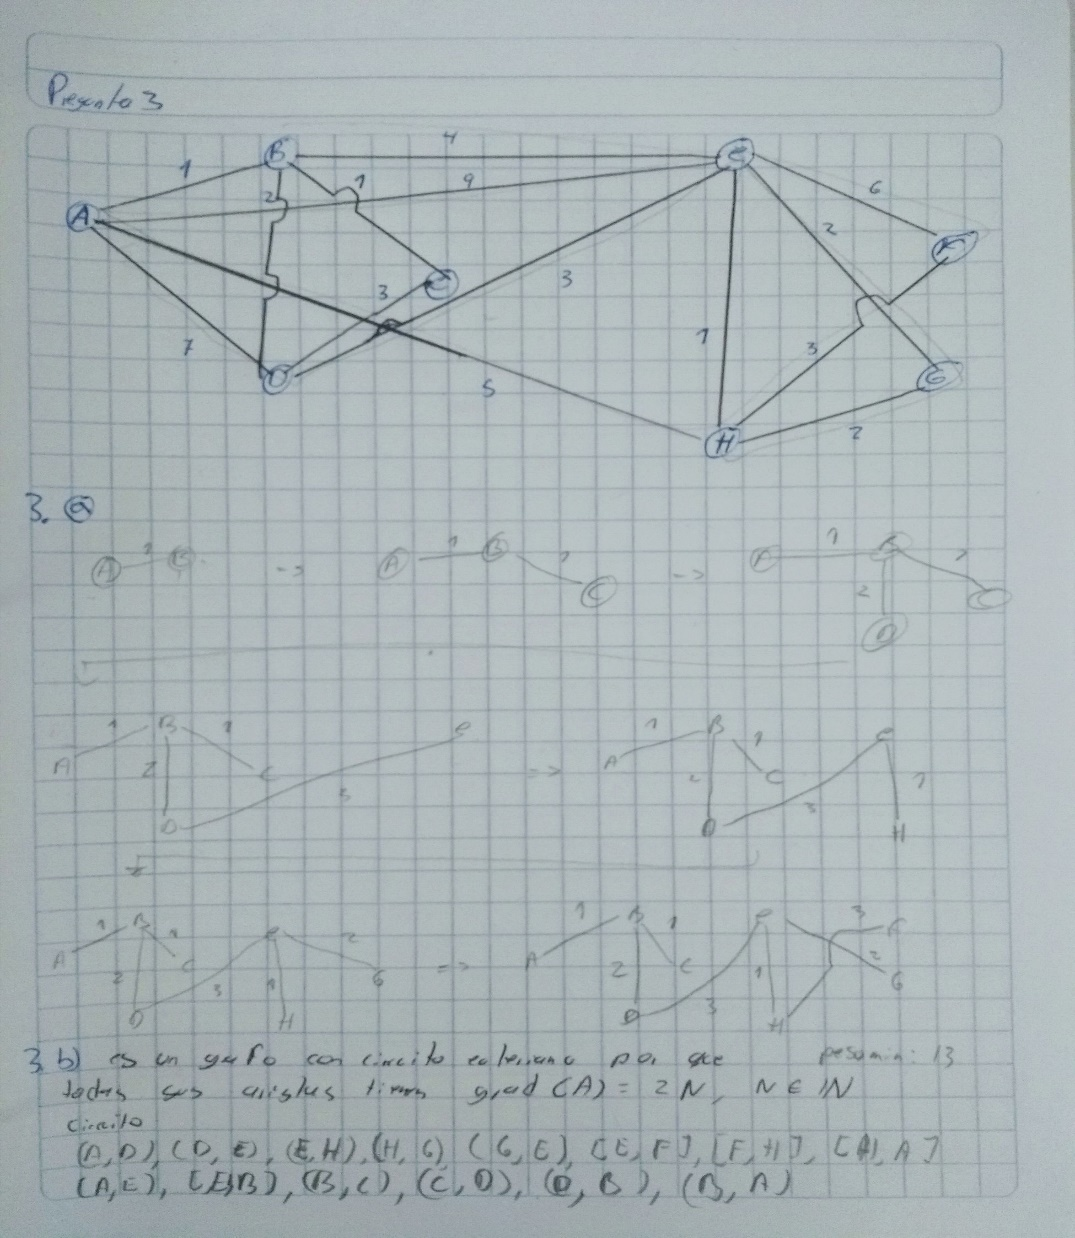 Pregunta 3
4
B
e
1
1
9
6
2
A
2
F
3
C
3
7
1
3
G
D
5
H
2
3. a
A 1 B -> A 1 B 1 C -> A 1 B 1 C 2 D
A 1 B 1 C 2 D 3 e => A 1 B 1 C 2 D 3 e 1 H
A 1 B 1 C 2 D 3 e 1 H 2 G => A 1 B 1 C 2 D 3 e 1 H 3 F 2 G
peso min: 13
3. b) es un grafo con circuito euleriano por que
todas sus aristas tienen grad (A) = 2 N, N ∈ IN
circuito
(A, D), (D, E), (E, H), (H, G) (G, E), [E, F], [F, H], [H, A]
(A, E), (E, B), (B, C), (C, D), (D, B), (B, A)